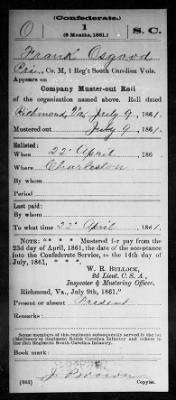 (Confederate.)
O 1 S. C.
(6 Months, 1861.)
Frank Osgood
Pri, Co. M, 1 Reg't South Carolina Vols.
Appears on
Company Muster-out Roll
of the organization named above. Roll dated
Richmond, Va, July 9, 1861.
Mustered out July 9, 1861.
Enlisted:
When 22 April, 186
Where Charleston
By whom
Period
Last paid:
By whom
To what time 22 April, 1861.
NOTE: * * * Mustered for pay from the
23d of April, 1861, the date of the acceptance
into the Confederate Service, to the 14th day
of July, 1861, * * *
W. R. BULLOCK,
2d Lieut. C. S. A.,
Inspector & Mustering Officer.
Richmond, Va., July 9th, 1861."
Present or absent Present
Remarks:
Book mark:
(645) Copyist.